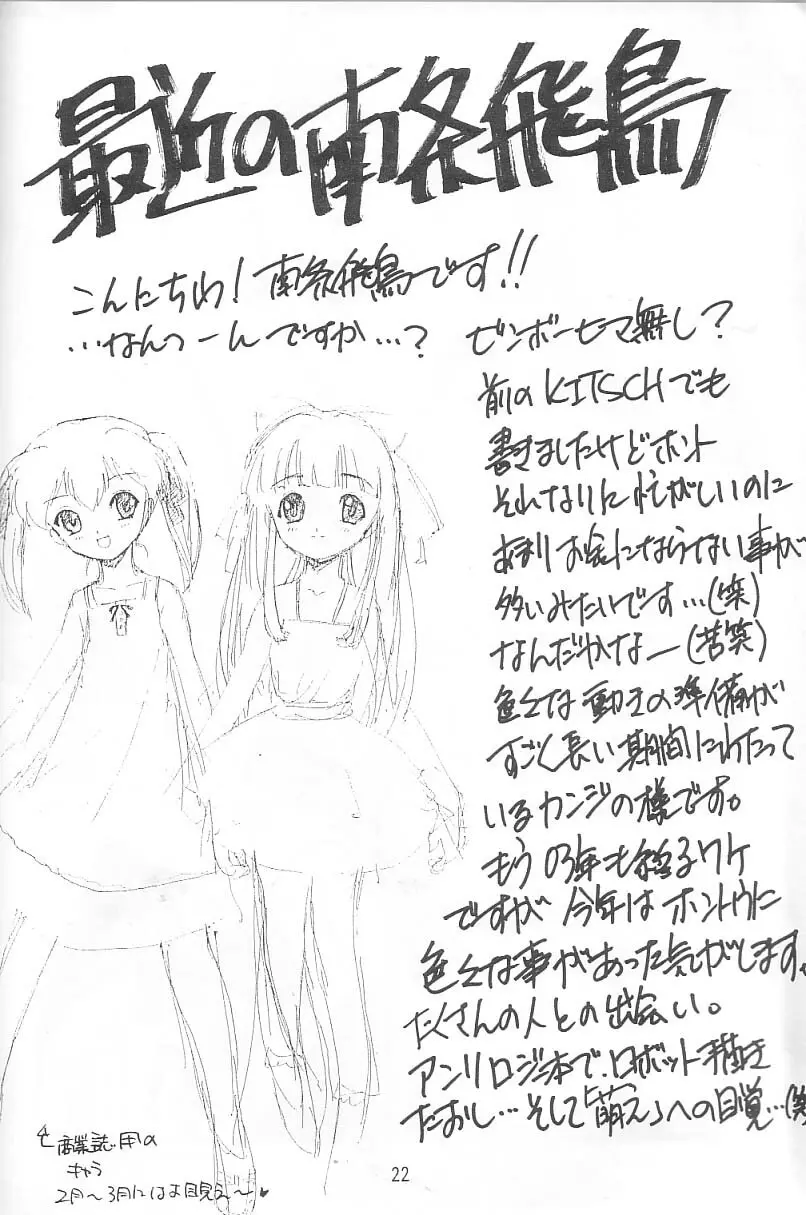 最近の南条飛鳥
こんにちわ！南条飛鳥です!!
…なんつーんですか…？ ビンボーヒマ無し？
前のKITSCHでも
書きましたけどホント
それなりに忙がしいのに
あまりお金にならない事が
多いみたいです…(笑)
なんだかなー(苦笑)
色々な動きの準備が
すごく長い期間にわたって
いるカンジの様です。
もう03年も終るワケ
ですが今年はホントウに
色々な事があった気がします。
たくさんの人との出会い。
アンソロジー本で、ロボット描き
たおし…そして「萌え」への目覚…(笑
商業誌用の
キャラ
2月〜3月にはお目見え〜♥
22